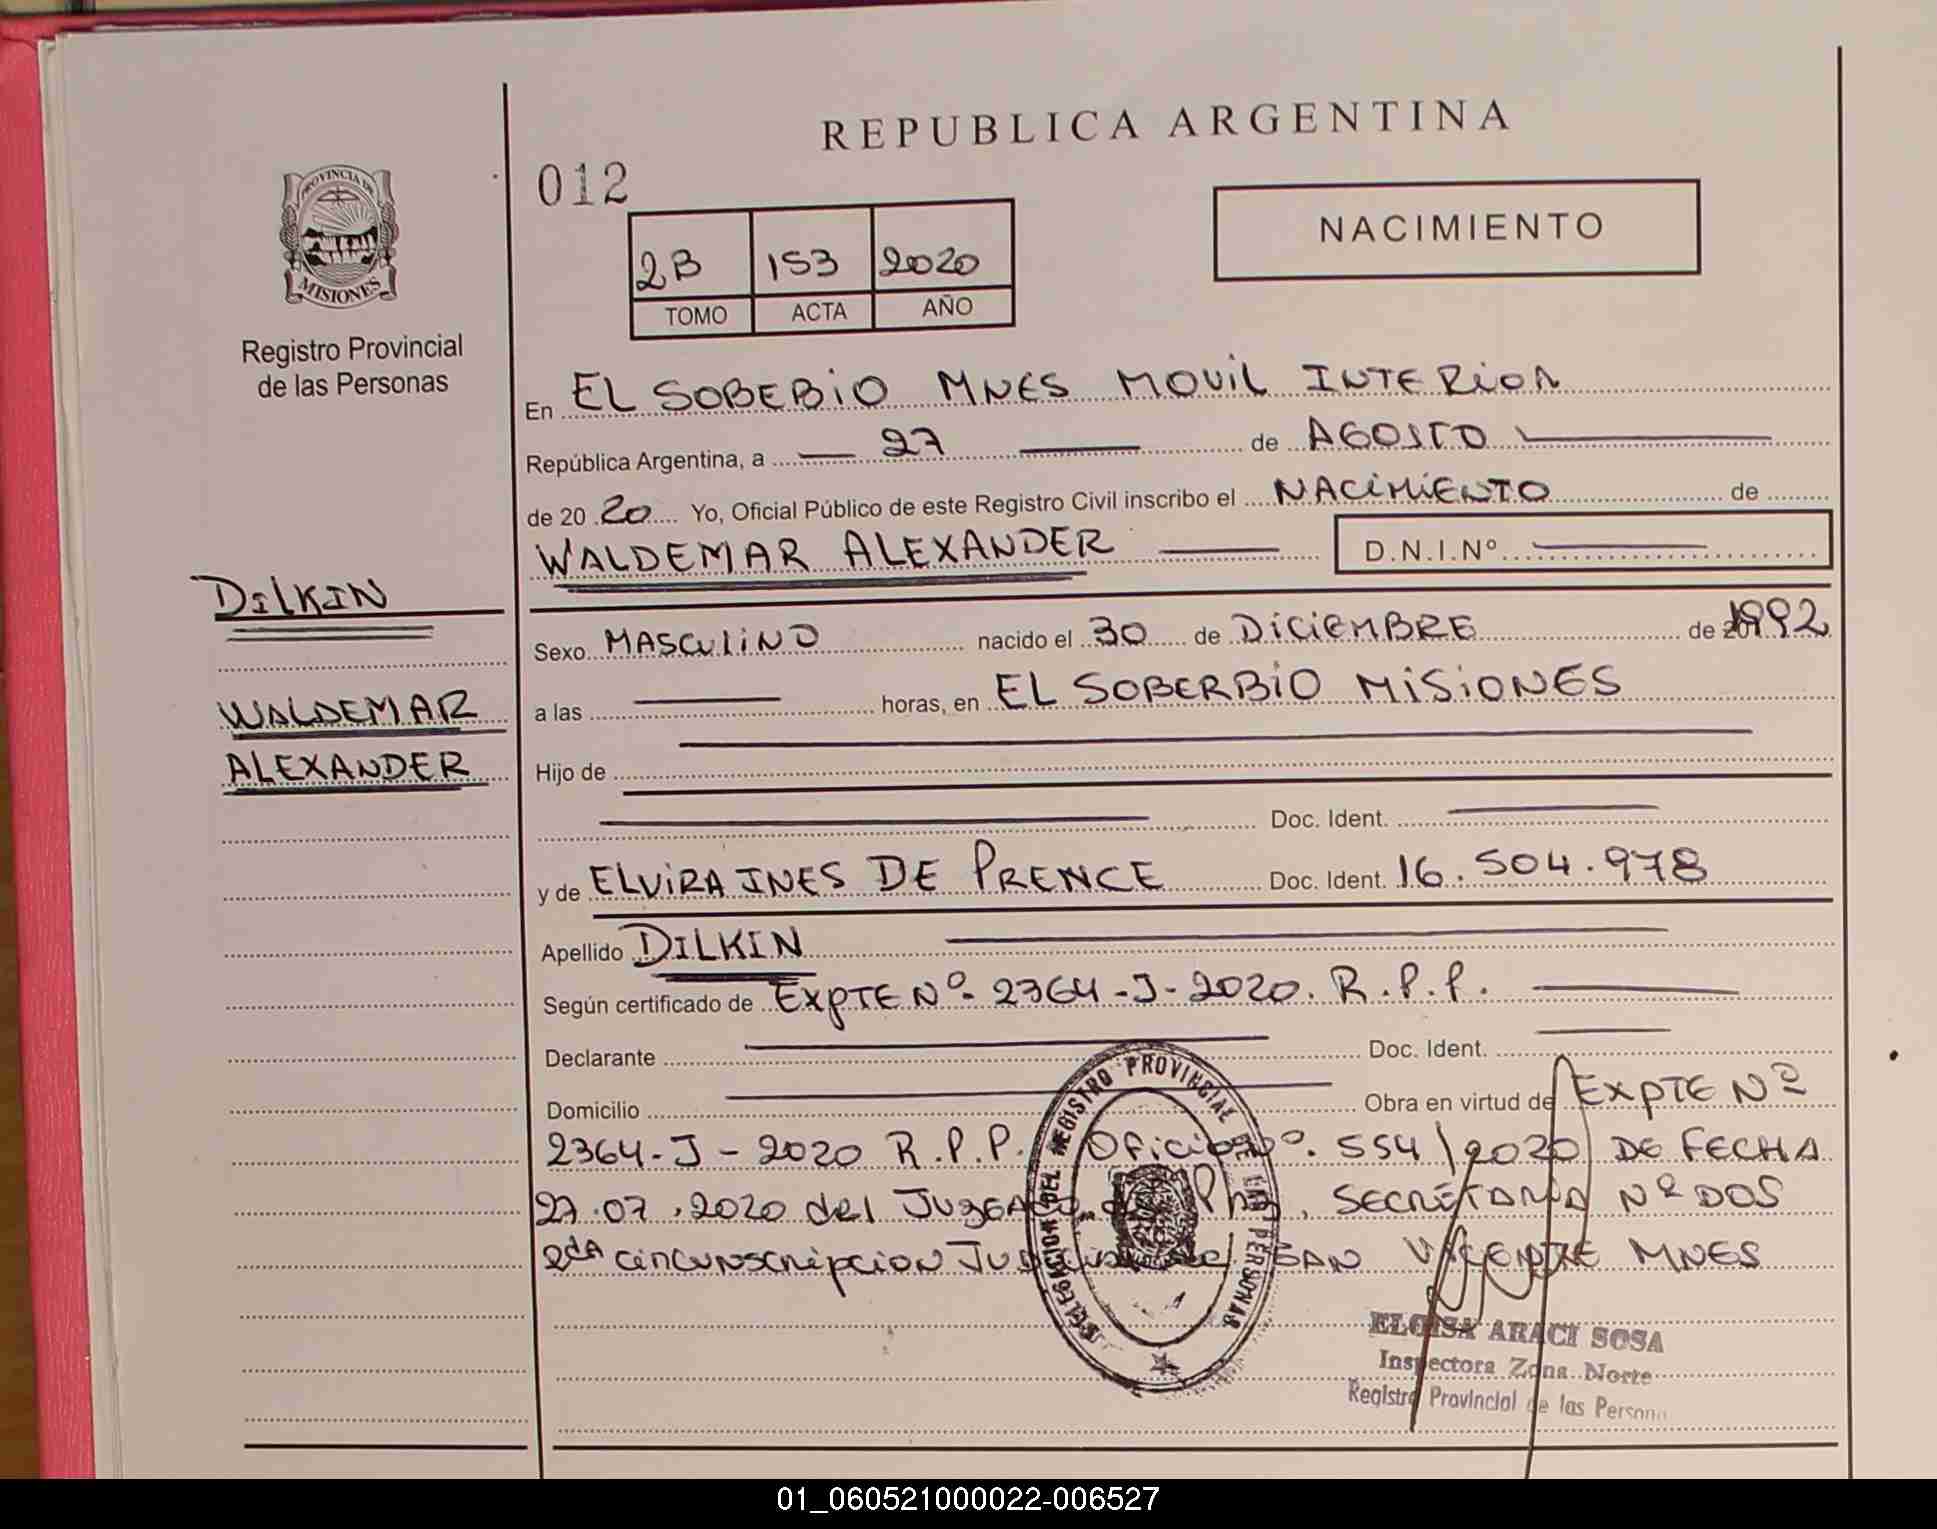 REPUBLICA ARGENTINA
012
NACIMIENTO
2B 153 2020
TOMO ACTA AÑO
PROVINCIA DE
MISIONES
Registro Provincial
de las Personas
En EL SOBEBIO MNES MOVIL INTERIOR
República Argentina, a 27 de AGOSTO
de 20 20 Yo, Oficial Público de este Registro Civil inscribo el NACIMIENTO de
WALDEMAR ALEXANDER D.N.I.Nº
DILKIN
WALDEMAR
ALEXANDER
Sexo MASCULINO nacido el 30 de DICIEMBRE de 1992
a las horas, en EL SOBERBIO MISIONES
Hijo de
Doc. Ident.
y de ELVIRA INES DE PRENCE Doc. Ident. 16.504.978
Apellido DILKIN
Según certificado de EXPTE Nº 2364-J-2020. R.P.P.
Declarante Doc. Ident.
Domicilio Obra en virtud de EXPTE Nº
2364-J-2020 R.P.P. Oficio Nº. 554/2020 DE FECHA
27.07.2020 del JUZGADO SECRETARIA Nº DOS
2dA circunscripcion JUDICIAL SAN VICENTE MNES
DELEGACION DEL REGISTRO PROVINCIAL DE LAS PERSONAS
ELOISA ARACI SOSA
Inspectora Zona Norte
Registro Provincial de las Persona
01_060521000022-006527